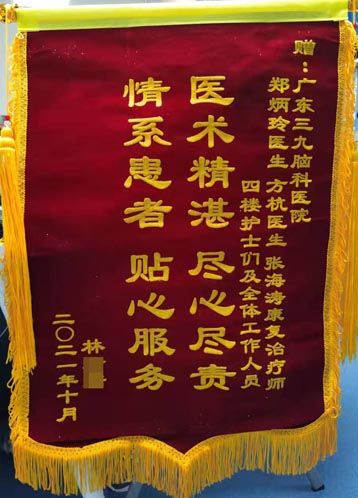 赠：广东三九脑科医院
郑炳玲医生 方杭医生 张海涛康复治疗师
四楼护士们及全体工作人员
医术精湛 尽心尽责
情系患者 贴心服务
林
二〇二一年十月